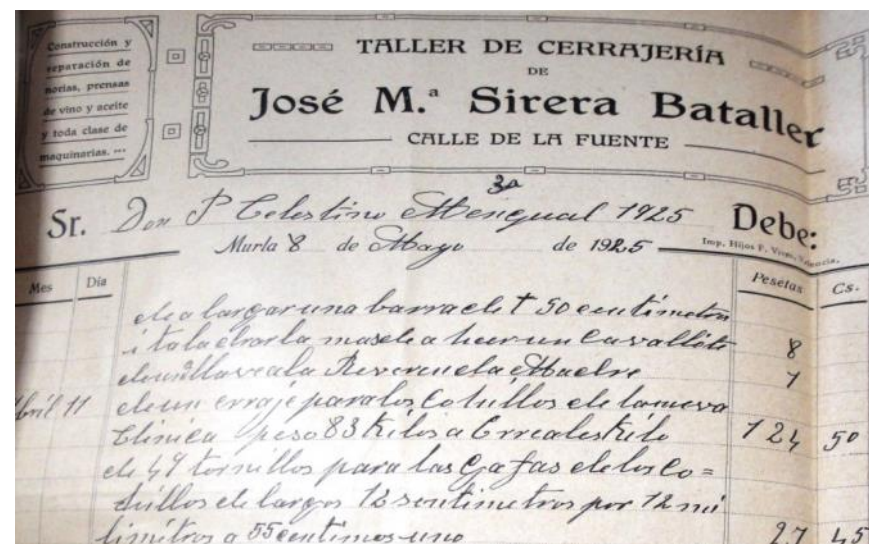 Construcción y
reparación de
norias, prensas
de vino y aceite
y toda clase de
maquinarias. ...
TALLER DE CERRAJERÍA
DE
José M.ª Sirera Bataller
CALLE DE LA FUENTE
3a
Sr. Don P Celestino Mengual 1925 Debe:
Murla 8 de Mayo de 1925
Imp. Hijos F. Vives, Valencia.
Mes Día Pesetas Cs.
de a largar una barra de t 50 centimetros
i taladrarla masde a hun cavallete 8
de una llave a la Reverenda Madre 1
Abril 11 de un erraje para los Cohillos de la nueva
Clinica peso 83 Kilos a 6 rreales Kilo 124 50
de 49 tornillos para las Gafas de los Co=
dillos de largos 12 sentimetros por 12 mi
limitros a 55 centimos uno 27 45